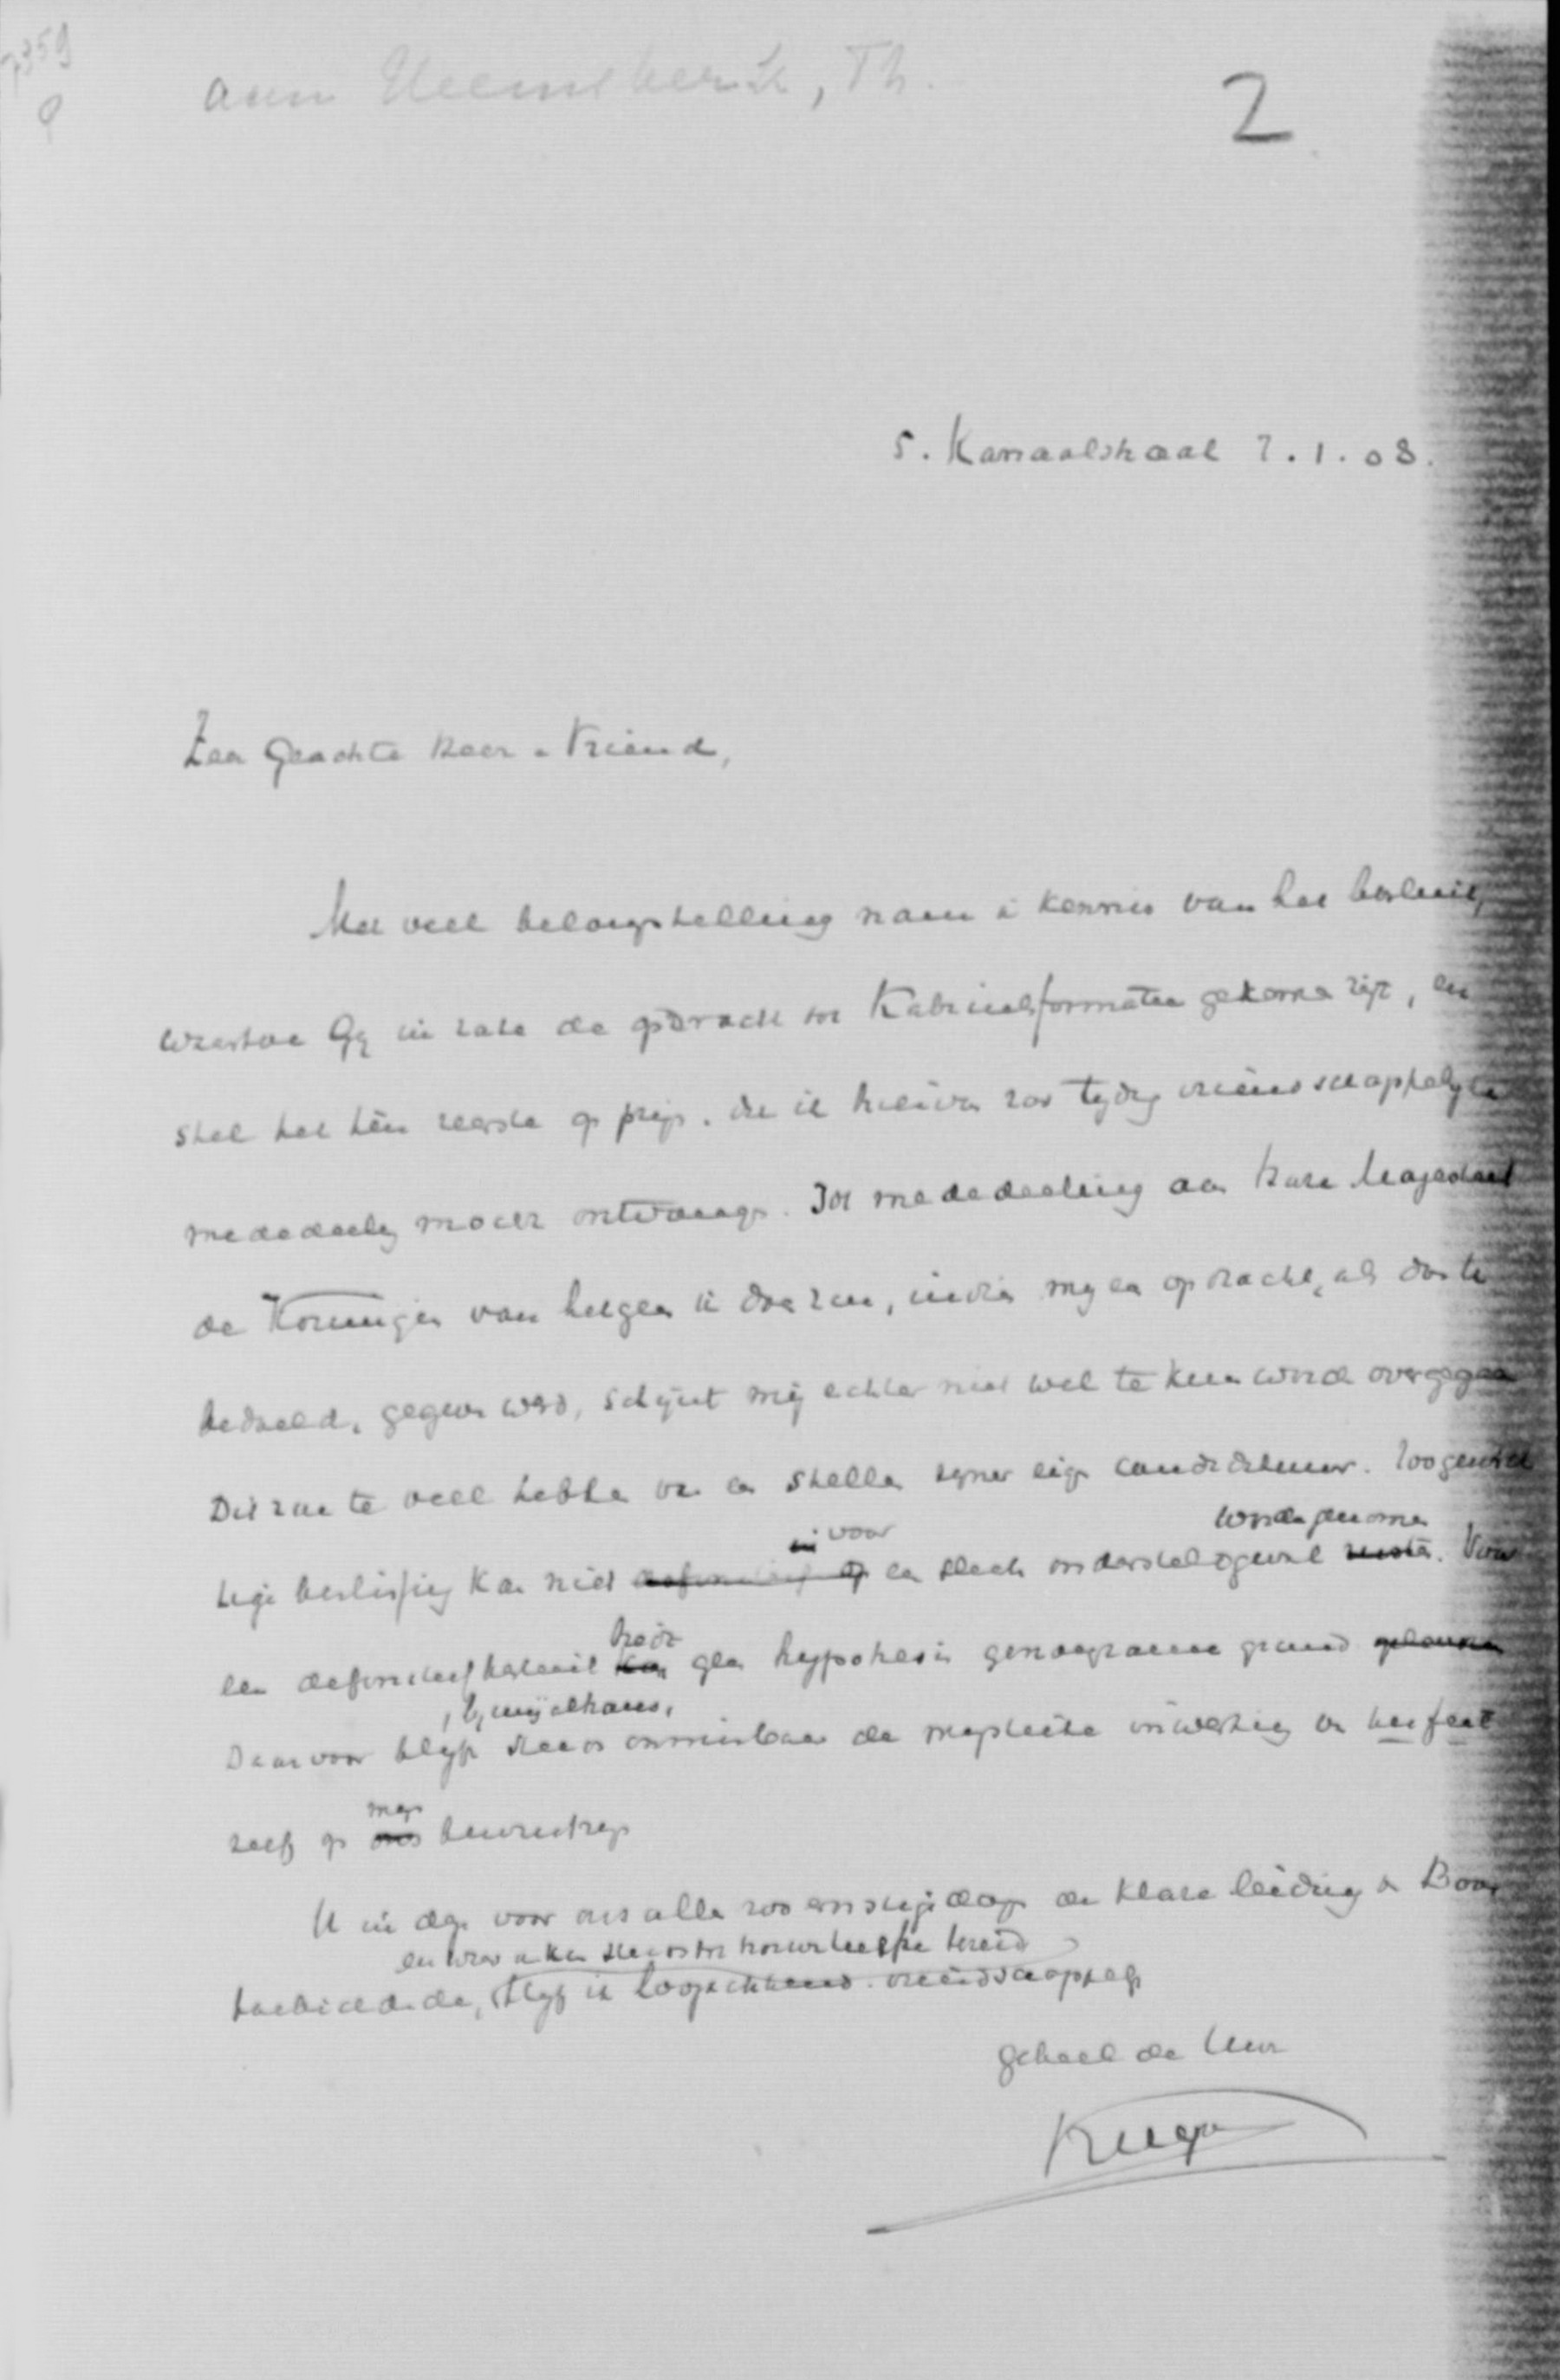 7359
aan Heemskerk, Th.
2
5. Kanaalstraat 2.1.08.
Zeer Geachte Heer en Vriend,
Met veel belangstelling nam ik kennis van het besluit,
waartoe Gij in zake de opdracht tot Kabinetsformatie gekomen zijt, en
stel het ten zeerste op prijs, dat ik hiervan zoo tijdig vriendschappelijke
mededeeling mocht ontvangen. Tot mededeeling aan Hare Majesteit
de Koningin van hetgeen ik doen zou, indien mij een opdracht, als door U
bedoeld, gegeven werd, schijnt mij echter niet wel te kunnen worden overgegaan
Dit zou te veel hebben van een stellen zijner eigen candidatuur.
beslissing kan niet voor een slechts ondersteld geval worden genomen. Voor
een definitief besluit biedt geen hypothesis genoegzame grond
Daarvoor blijft, bij mij althans, steeds onmisbaar de inwerking van het feit
zelf op mijn bewustzijn
U in dagen voor ons allen zoo ernstige de klare leiding van Boven
toebiddende, blijf ik hoogachtend vriendschappelijk
geheel de Uwe
Kuyper